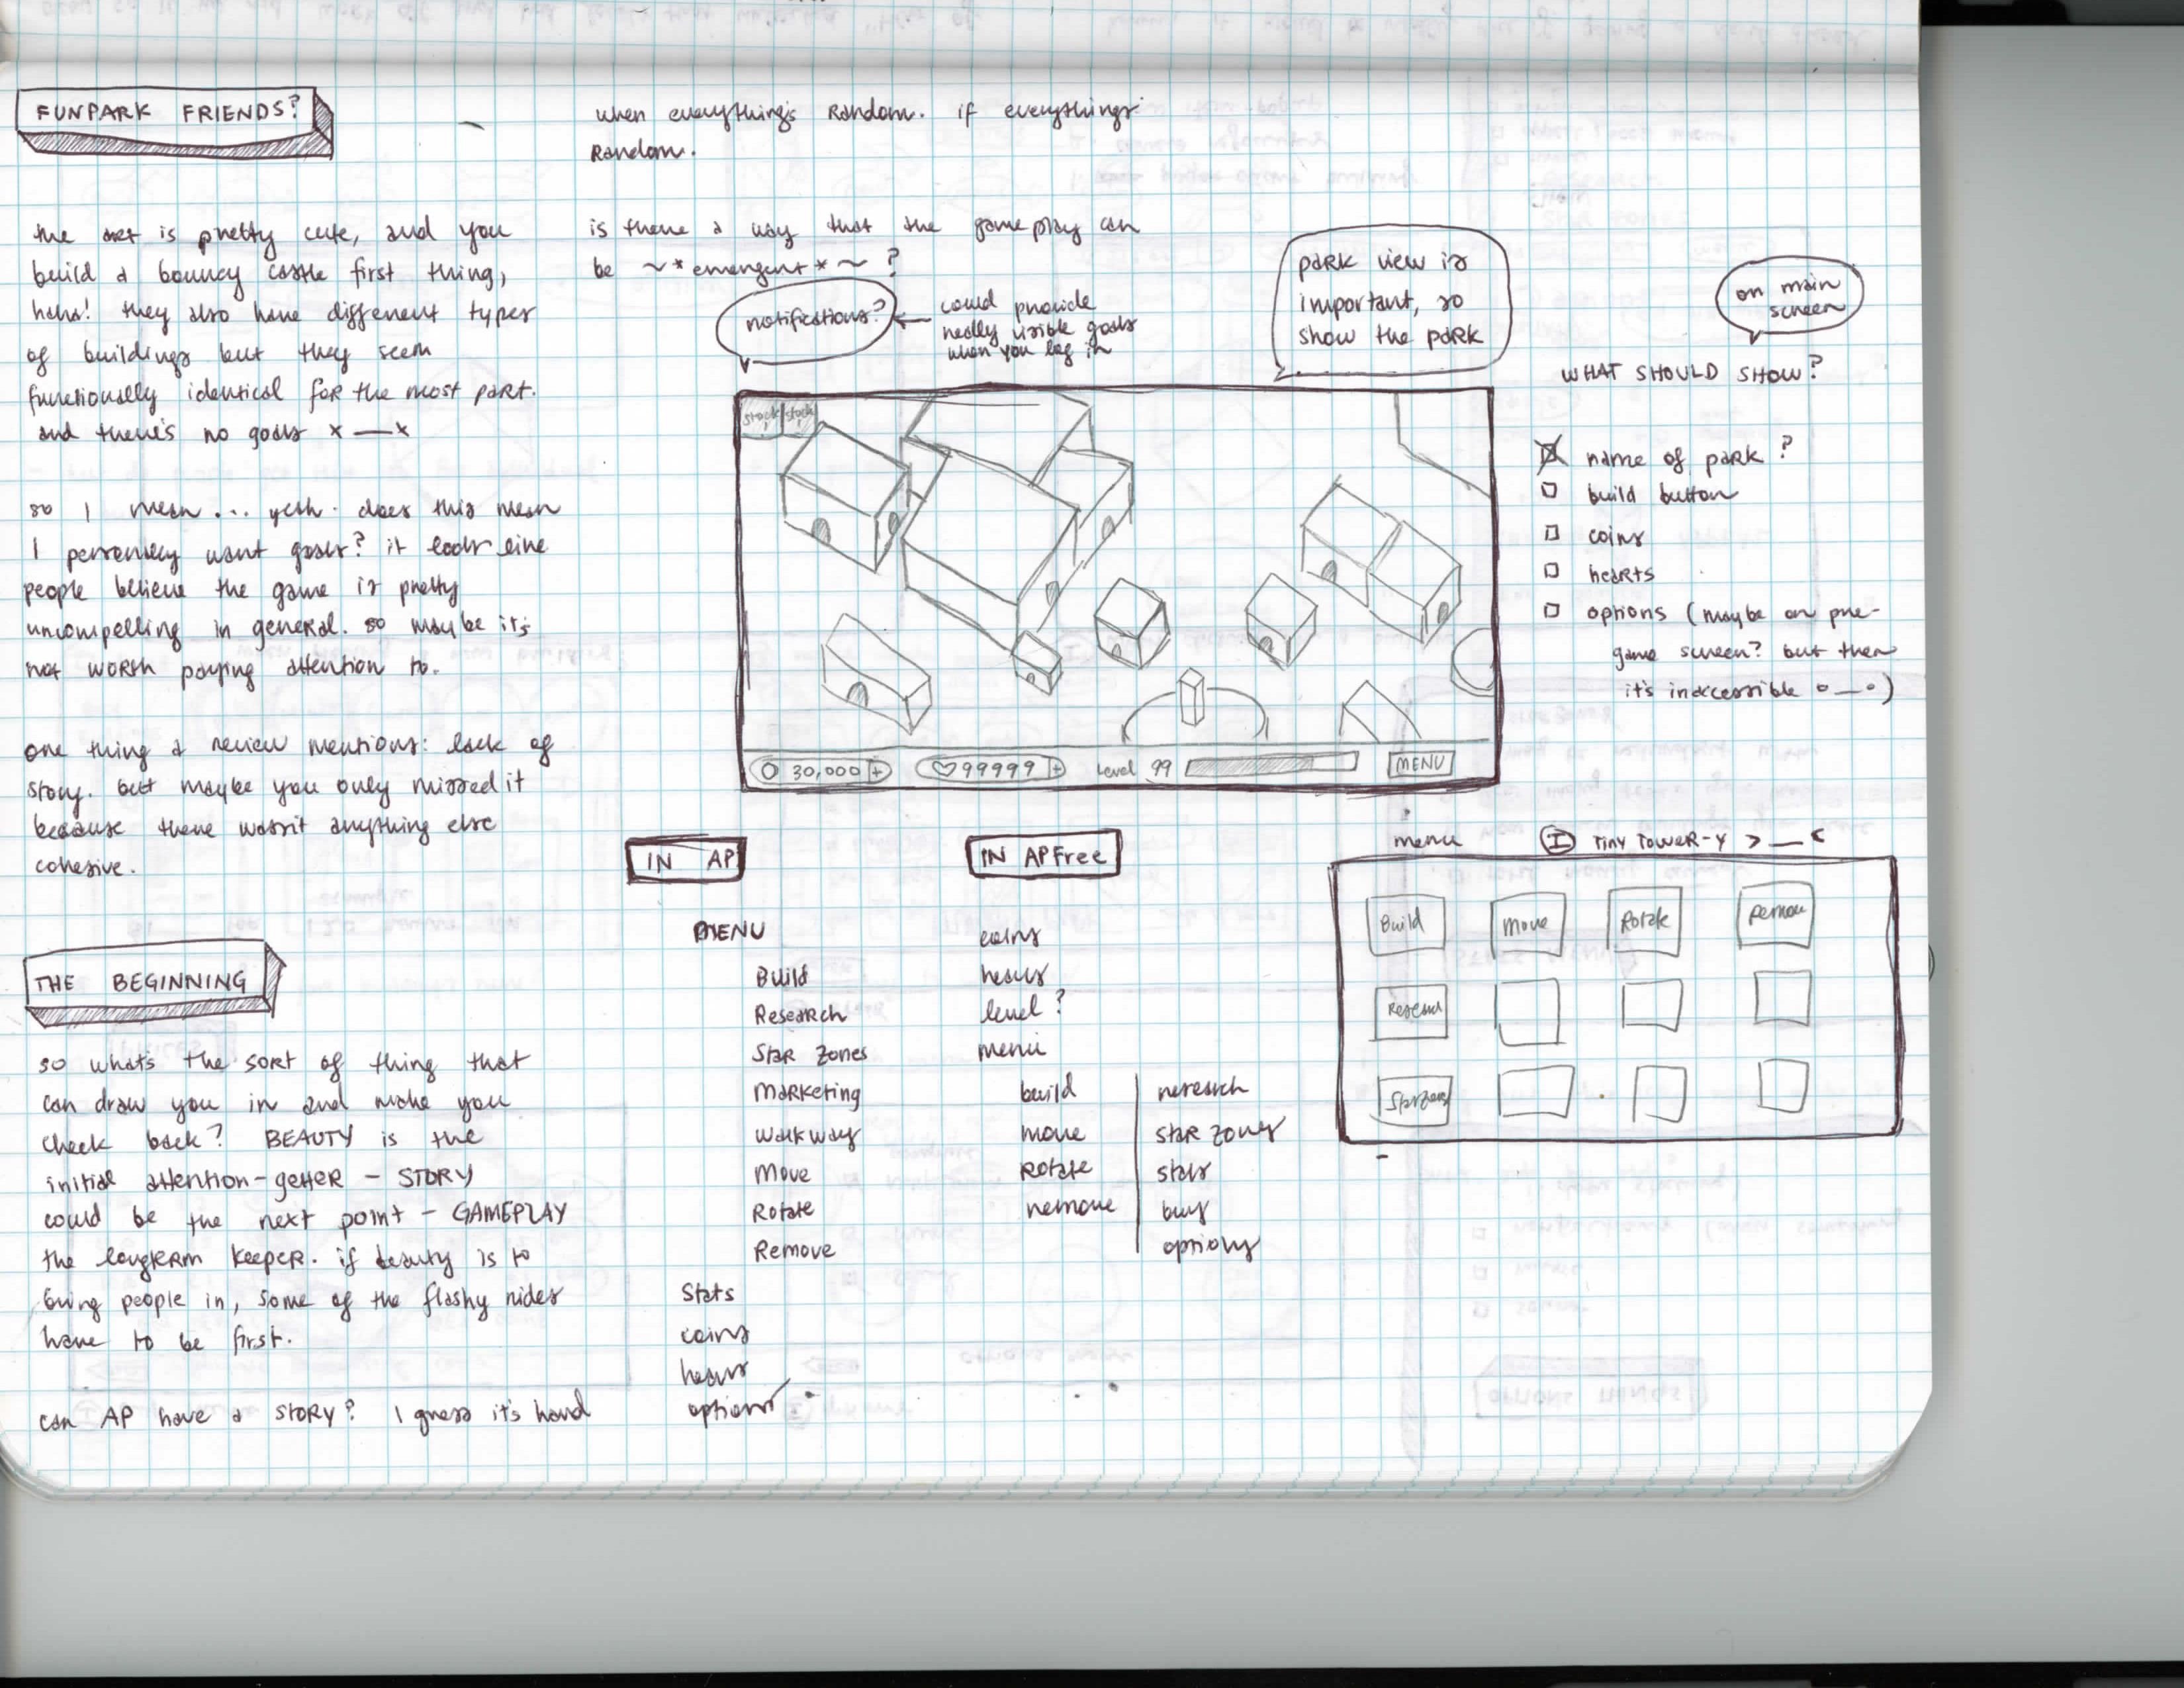 FUNPARK FRIENDS?
the art is pretty cute, and you
build a bouncy castle first thing,
haha! they also have different types
of buildings but they seem
functionally identical for the most part.
and there's no goals x__x
so I mean... yeah. does this mean
I personally want goals? it looks like
people believe the game is pretty
uncompelling in general. so maybe it's
not worth paying attention to.
one thing a review mentions: lack of
story. but maybe you only missed it
because there wasn't anything else
cohesive.
THE BEGINNING
so what's the sort of thing that
can draw you in and make you
check back? BEAUTY is the
initial attention-getter - STORY
could be the next point - GAMEPLAY
the longterm keeper. if beauty is to
bring people in, some of the flashy rides
have to be first.
can AP have a story? I guess it's hard
when everything's random. if everything's
random.
is there a way that the gameplay can
be ~*emergent*~ ?
notifications?
could provide
really visible goals
when you log in
park view is
important, so
show the park
on main
screen
WHAT SHOULD SHOW?
name of park?
build button
coins
hearts
options (maybe on pre-
game screen? but then
it's inaccessible o__o)
stock! stock!
30,000 +
99999 +
Level 99
MENU
IN AP
MENU
Build
Research
Star Zones
Marketing
Walkway
Move
Rotate
Remove
Stats
coins
hearts
options
IN APFree
coins
hearts
level?
menu
build
move
rotate
remove
research
star zones
stats
buy
options
menu
I Tiny Tower-y >__<
Build
Move
Rotate
Remove
Research